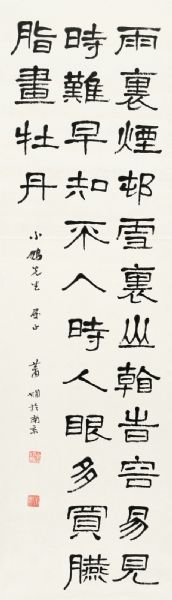 雨裏煙邨雪裏山看旹容易見
時難早知不入時人眼多買臙
脂畫牡丹
小鵬先生 屬正
蕭嫻於南京